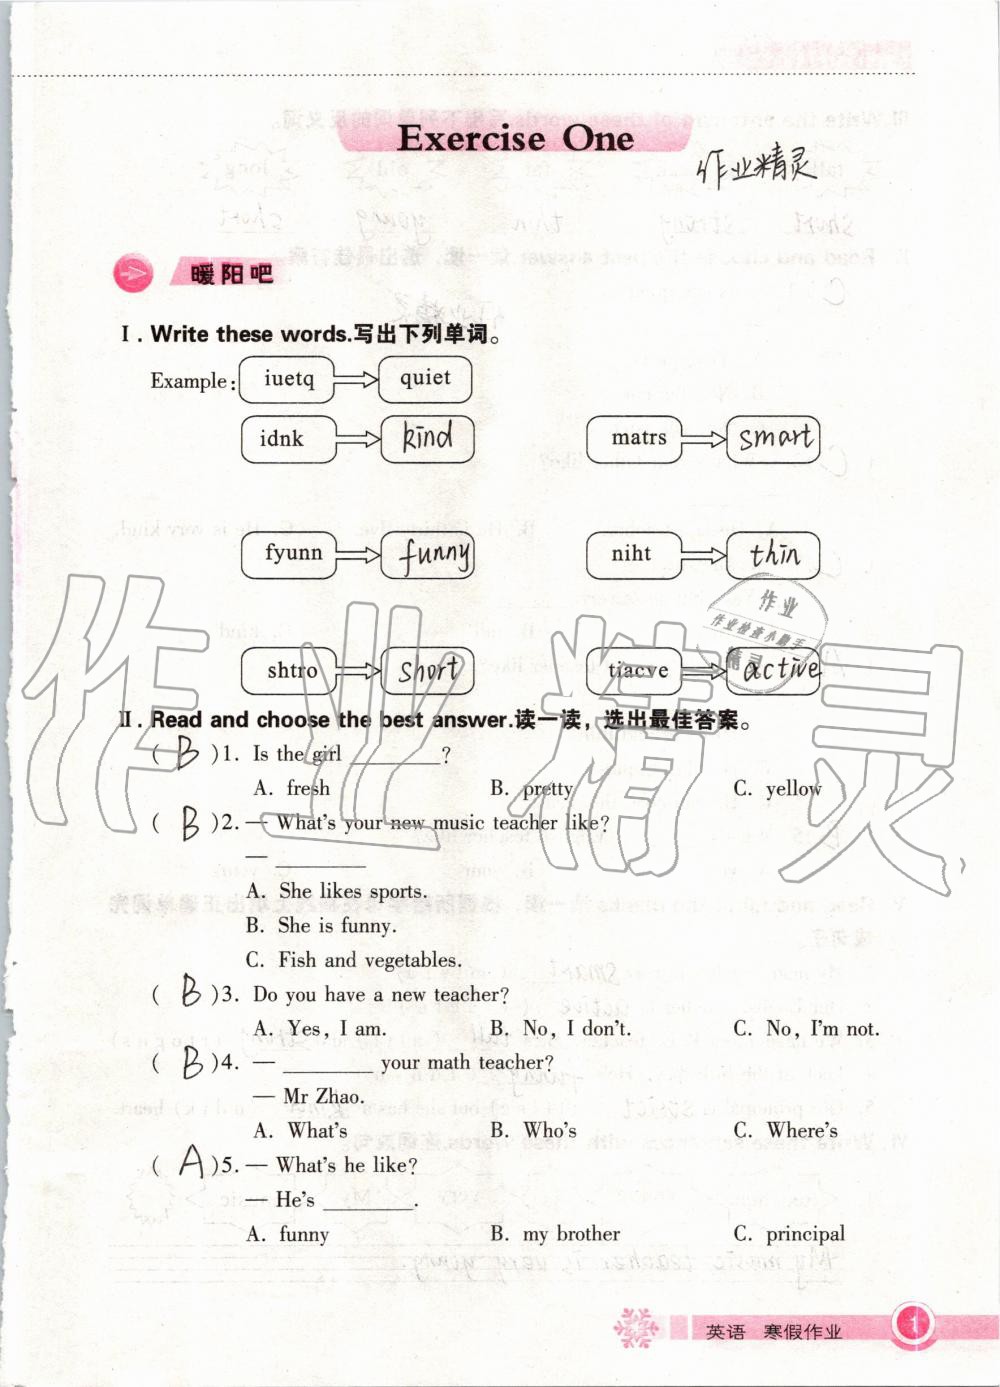 Exercise One
作业精灵
暖阳吧
Ⅰ. Write these words.写出下列单词。
Example: iuetq quiet
idnk kind matrs smart
fyunn funny niht thin
作业
作业检查小助手
精灵
shtro short tiacve active
作业精灵
Ⅱ. Read and choose the best answer.读一读，选出最佳答案。
( B )1. Is the girl ________?
A. fresh B. pretty C. yellow
( B )2. — What's your new music teacher like?
— ________
A. She likes sports.
B. She is funny.
C. Fish and vegetables.
( B )3. Do you have a new teacher?
A. Yes, I am. B. No, I don't. C. No, I'm not.
( B )4. — ________ your math teacher?
— Mr Zhao.
A. What's B. Who's C. Where's
( A )5. — What's he like?
— He's ________.
A. funny B. my brother C. principal
英语 寒假作业 1